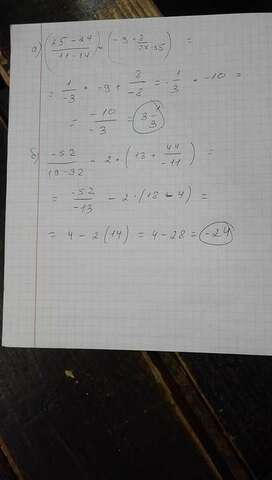 а) (25-24 / 11-14) · (-9 + 3 / 32-35) =
= 1 / -3 · -9 + 3 / -3 = - 1 / 3 · -10 =
= -10 / -3 = 3 1/3
б) -52 / 19-32 - 2 · (18 + 44 / -11) =
= -52 / -13 - 2 · (18 - 4) =
= 4 - 2(14) = 4 - 28 = -24